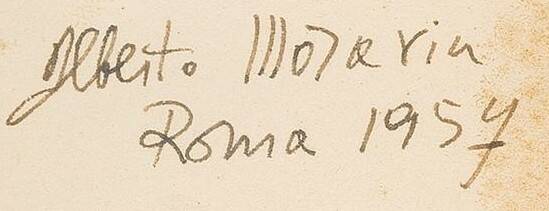 Alberto Moravia
Roma 1957